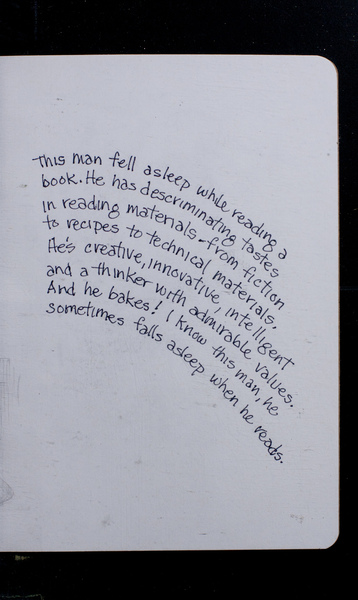 This man fell asleep while reading a
book. He has descriminating tastes
in reading materials - from fiction
to recipes to technical materials.
He's creative, innovative, intelligent
and a thinker with admirable values.
And he bakes! I know this man, he
sometimes falls asleep when he reads.